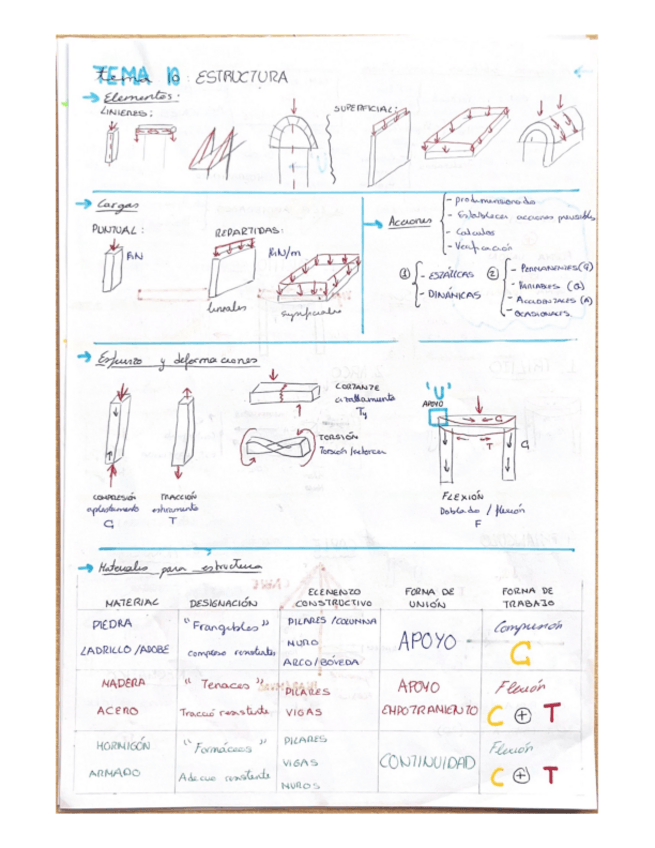 TEMA 10: ESTRUCTURA
Elementos:
LINIERES:
SUPERFICIAL:
Cargas
PUNTUAL:
REPARTIDAS:
KN
KN/m
lineales
superficiales
Acciones
- predimensionado
- Establecer acciones previsibles
- Calculos
- Verificación
① - ESTÁTICAS
- DINÁMICAS
② - PERMANENTES (G)
- VARIABLES (Q)
- ACCIDENTALES (A)
- OCASIONALES
Esfuerzo y deformaciones
COMPRESIÓN
aplastamiento
C
TRACCIÓN
estiramiento
T
CORTANTE
cizallamiento
Ty
TORSIÓN
Torsión/retorcer
'U'
APOYO
C
T
C
FLEXIÓN
Doblado / flexión
F
Materiales para estructura
MATERIAL
DESIGNACIÓN
ELEMENTO CONSTRUCTIVO
FORMA DE UNIÓN
FORMA DE TRABAJO
PIEDRA
LADRILLO/ADOBE
"Frangibles"
compreso resistentes
PILARES/COLUMNA
MURO
ARCO/BÓVEDA
APOYO
Compresión
C
MADERA
ACERO
"Tenaces"
Tracció resistente
PILARES
VIGAS
APOYO
EMPOTRAMIENTO
Flexión
C + T
HORMIGÓN
ARMADO
"Formáceos"
Adecuo resistente
PILARES
VIGAS
MUROS
CONTINUIDAD
Flexión
C + T